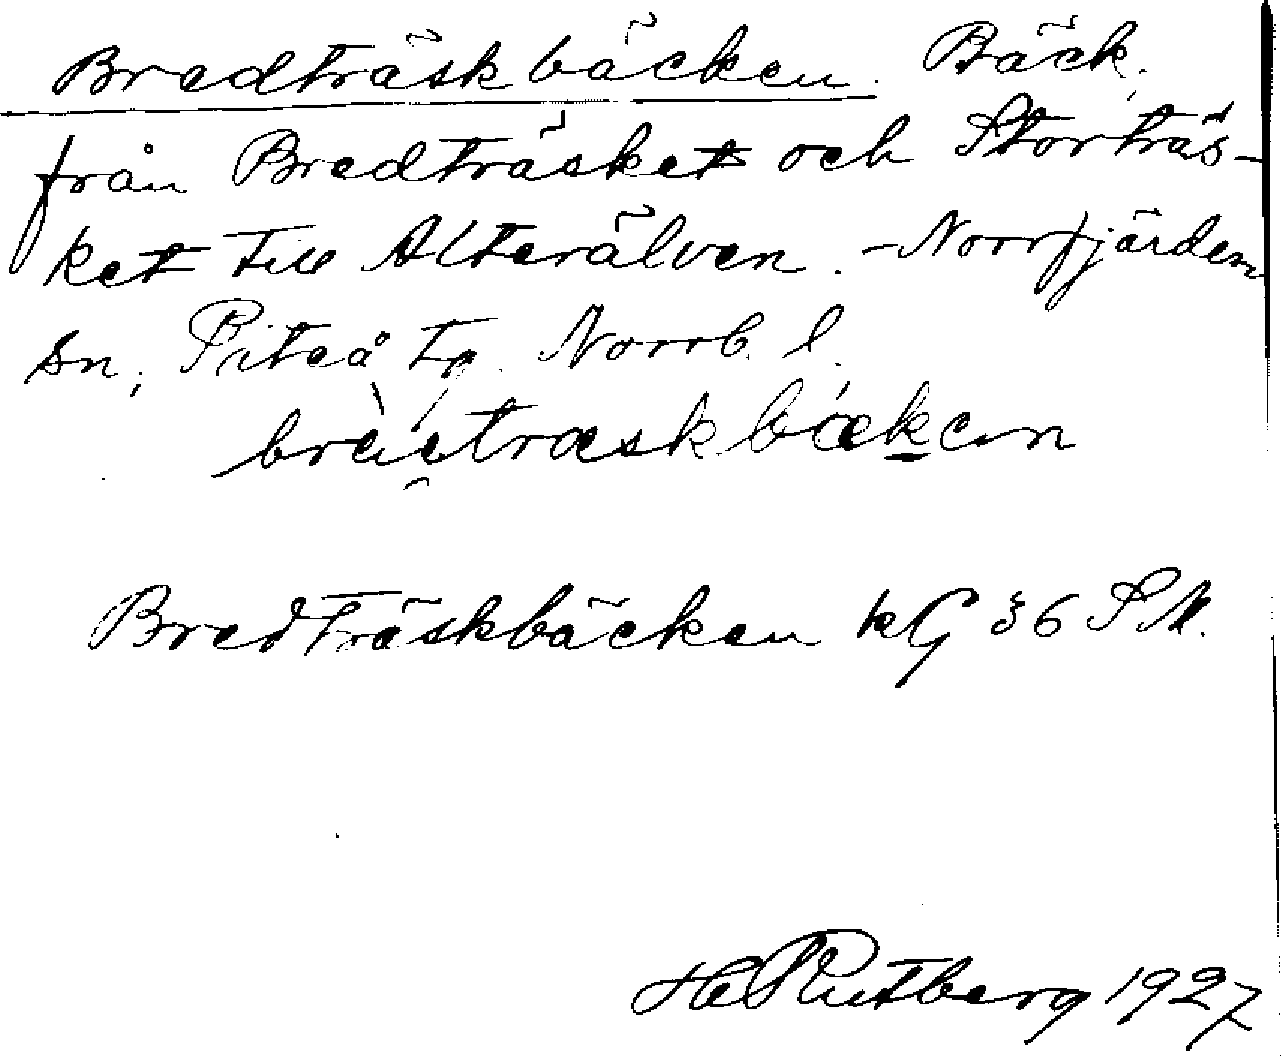 Bredträskbäcken. Bäck,
från Bredträsket och Storträs-
ket till Alterälven. - Norrfjärden
sn, Piteå tg. Norrb. l.
bræetræskbæken
Bredträskbäcken kG 36 SM.
H Rutberg 1927